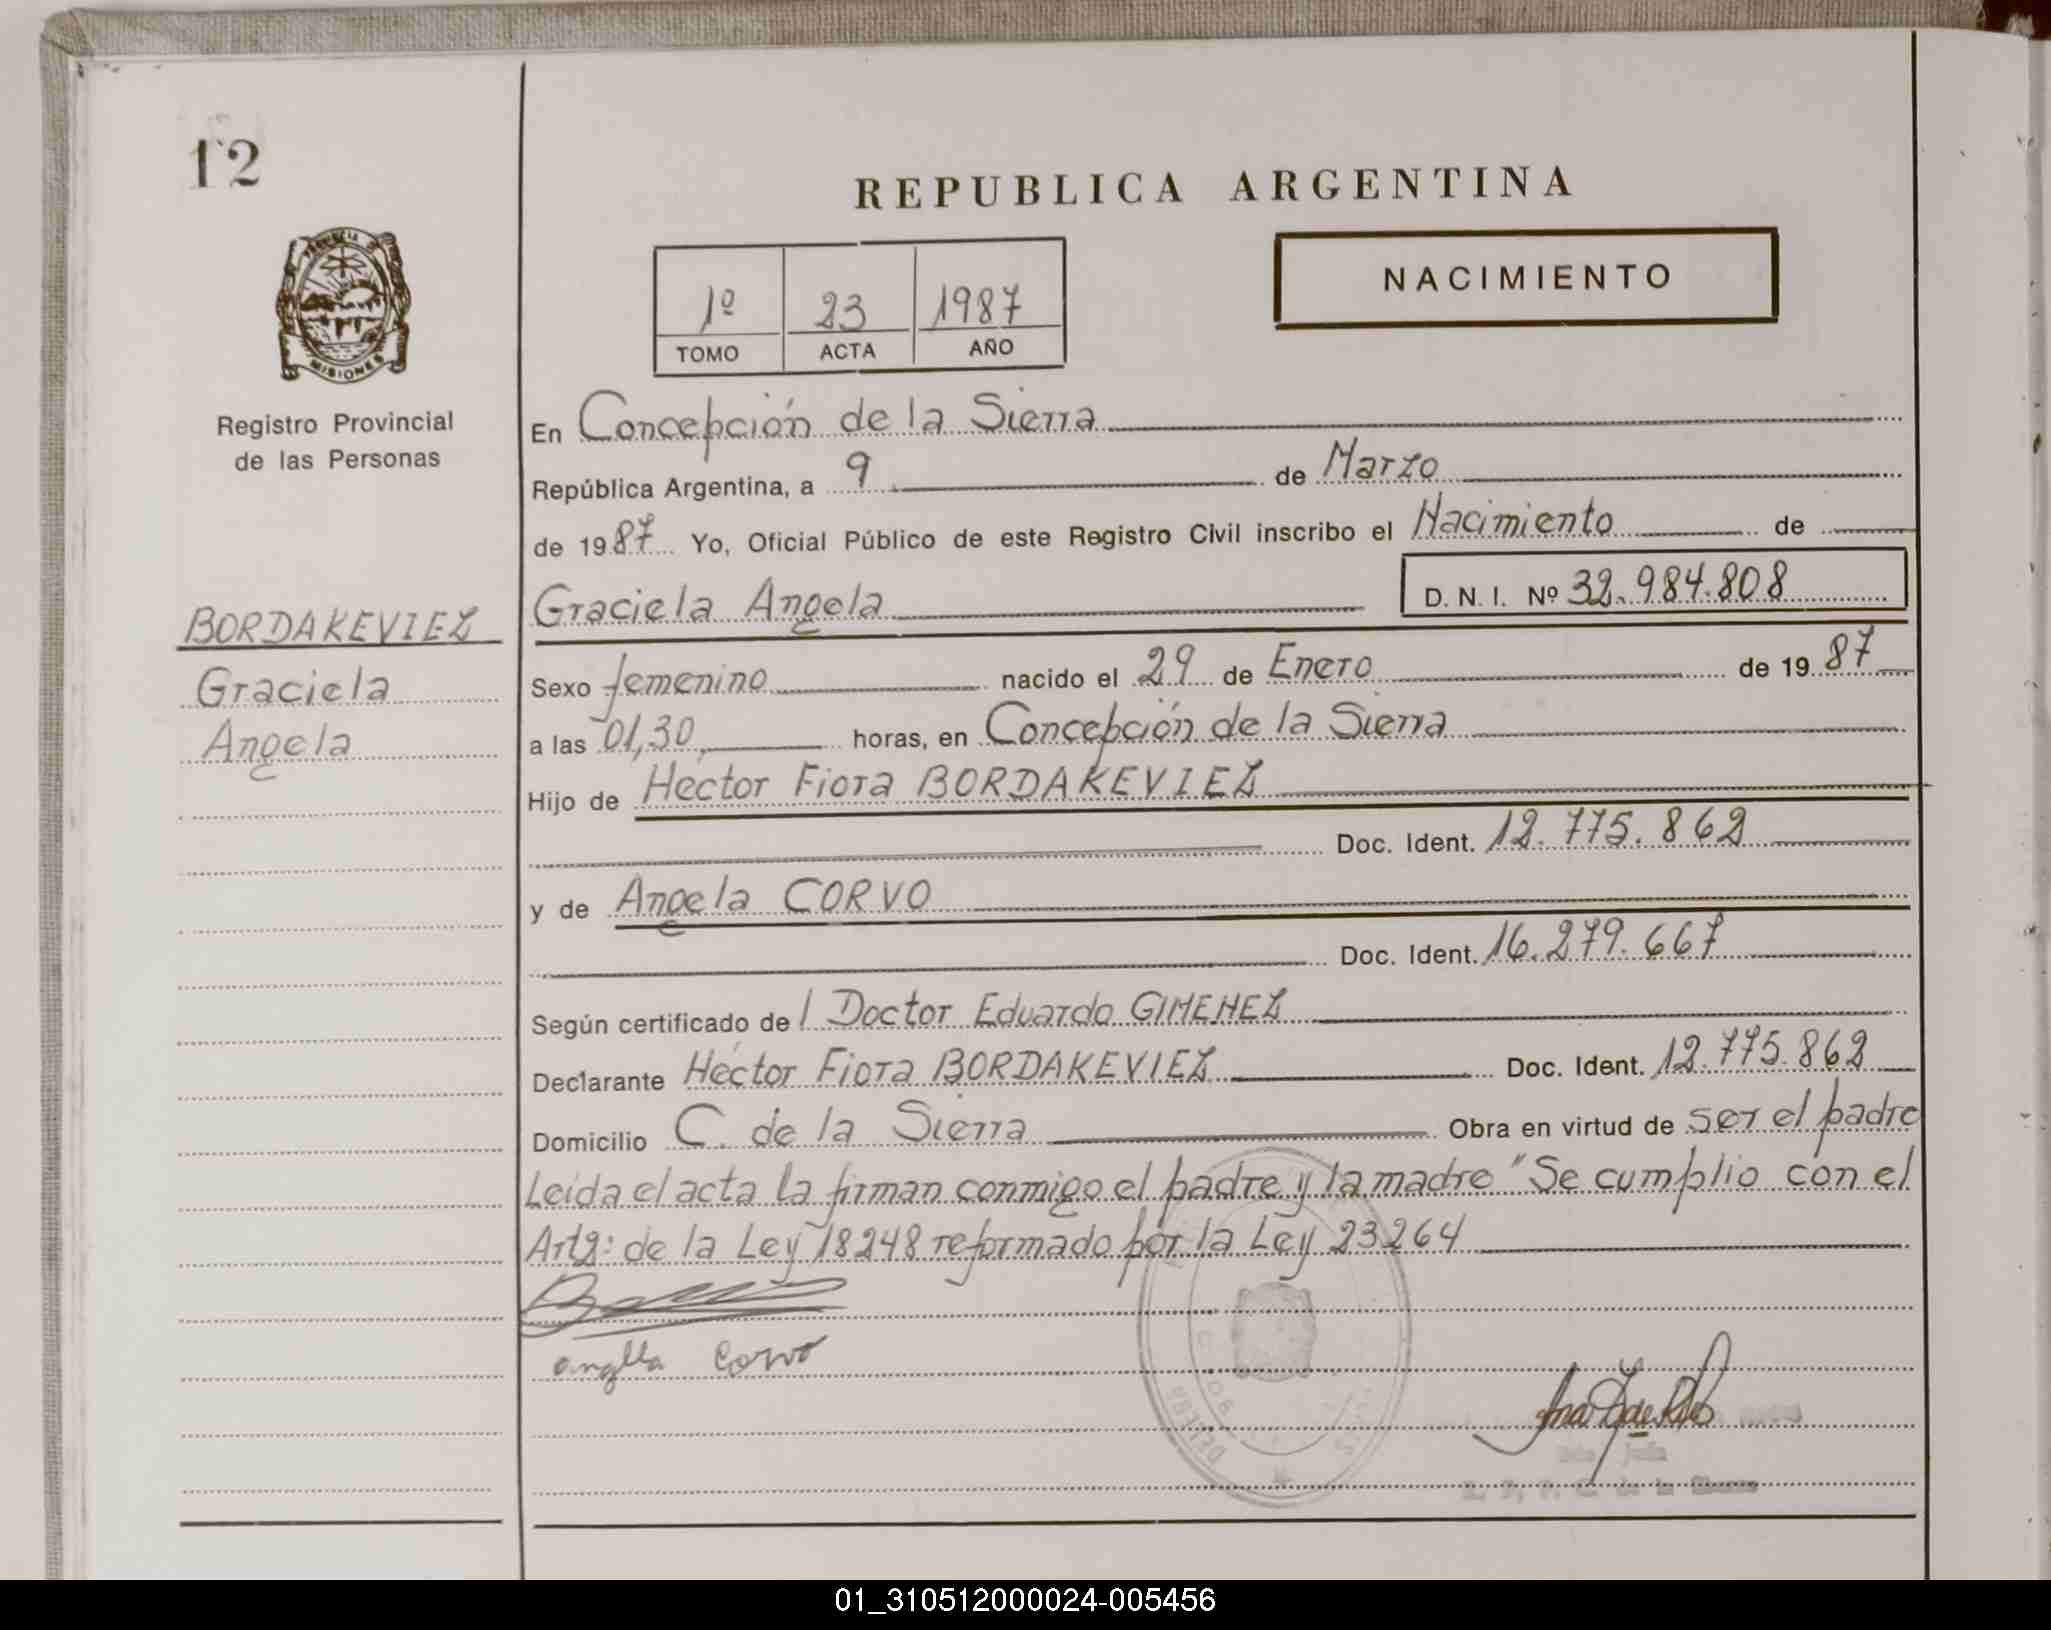 12
REPUBLICA ARGENTINA
NACIMIENTO
1º 23 1987
TOMO ACTA AÑO
PROVINCIA DE
MISIONES
Registro Provincial
de las Personas
BORDAKEVIEZ
Graciela
Angela
En Concepción de la Sierra
República Argentina, a 9 de Marzo
de 1987 Yo, Oficial Público de este Registro Civil inscribo el Nacimiento de
Graciela Angela D. N. I. Nº 32.984.808
Sexo femenino nacido el 29 de Enero de 1987
a las 01,30 horas, en Concepción de la Sierra
Hijo de Héctor Fiora BORDAKEVIEZ
Doc. Ident. 12.775.862
y de Angela CORVO
Doc. Ident. 16.279.667
Según certificado de l Doctor Eduardo GIMENEZ
Declarante Héctor Fiora BORDAKEVIEZ Doc. Ident. 12.775.862
Domicilio C. de la Sierra Obra en virtud de ser el padre
Leída el acta la firman conmigo el padre y la madre "Se cumplio con el
Art2: de la Ley 18248 reformado por la Ley 23264
angella Corvo
01_310512000024-005456